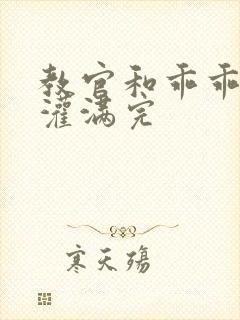 教官和乖乖
灌满完
寒天殇